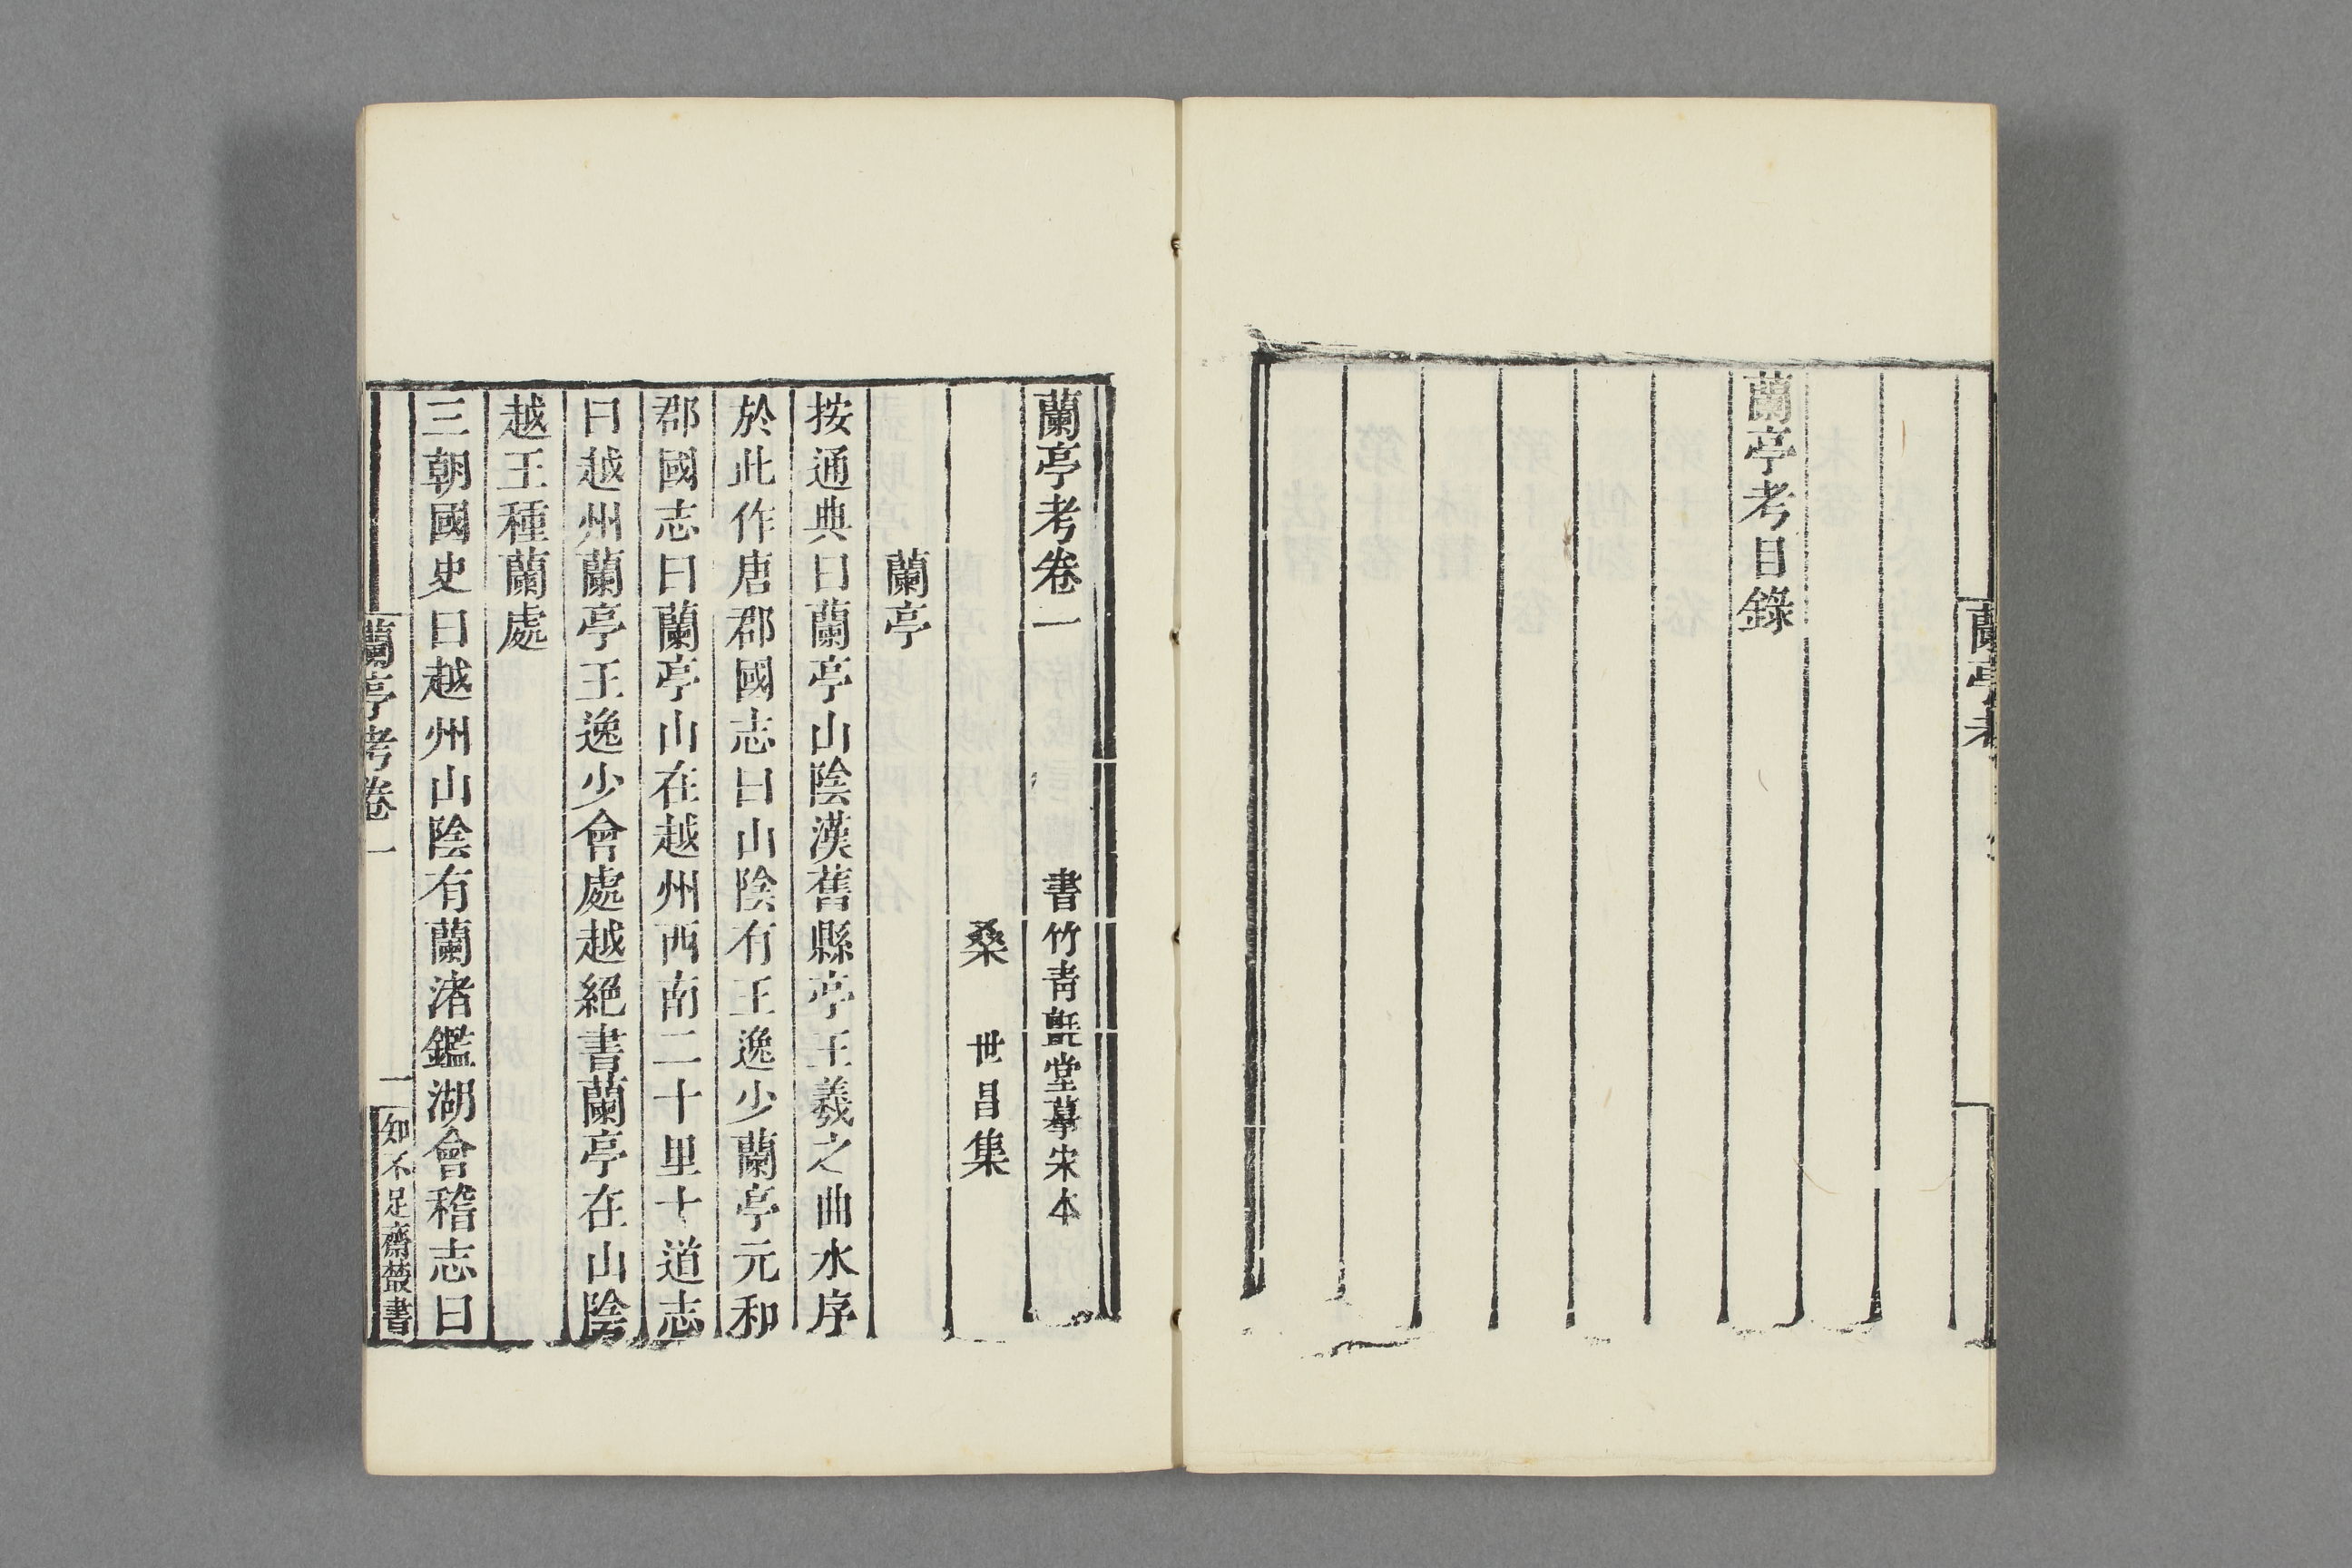 蘭亭考
蘭亭考目錄
蘭亭考卷一 書竹靑㲲堂摹宋本
桑 世昌集
蘭亭
按通典曰蘭亭山陰漢舊縣亭王羲之曲水序
於此作唐郡國志曰山陰有王逸少蘭亭元和
郡國志曰蘭亭山在越州西南二十里十道志
曰越州蘭亭王逸少會處越絕書蘭亭在山陰
越王種蘭處
三朝國史曰越州山陰有蘭渚鑑湖會稽志曰
蘭亭考卷一 一 知不足齋叢書